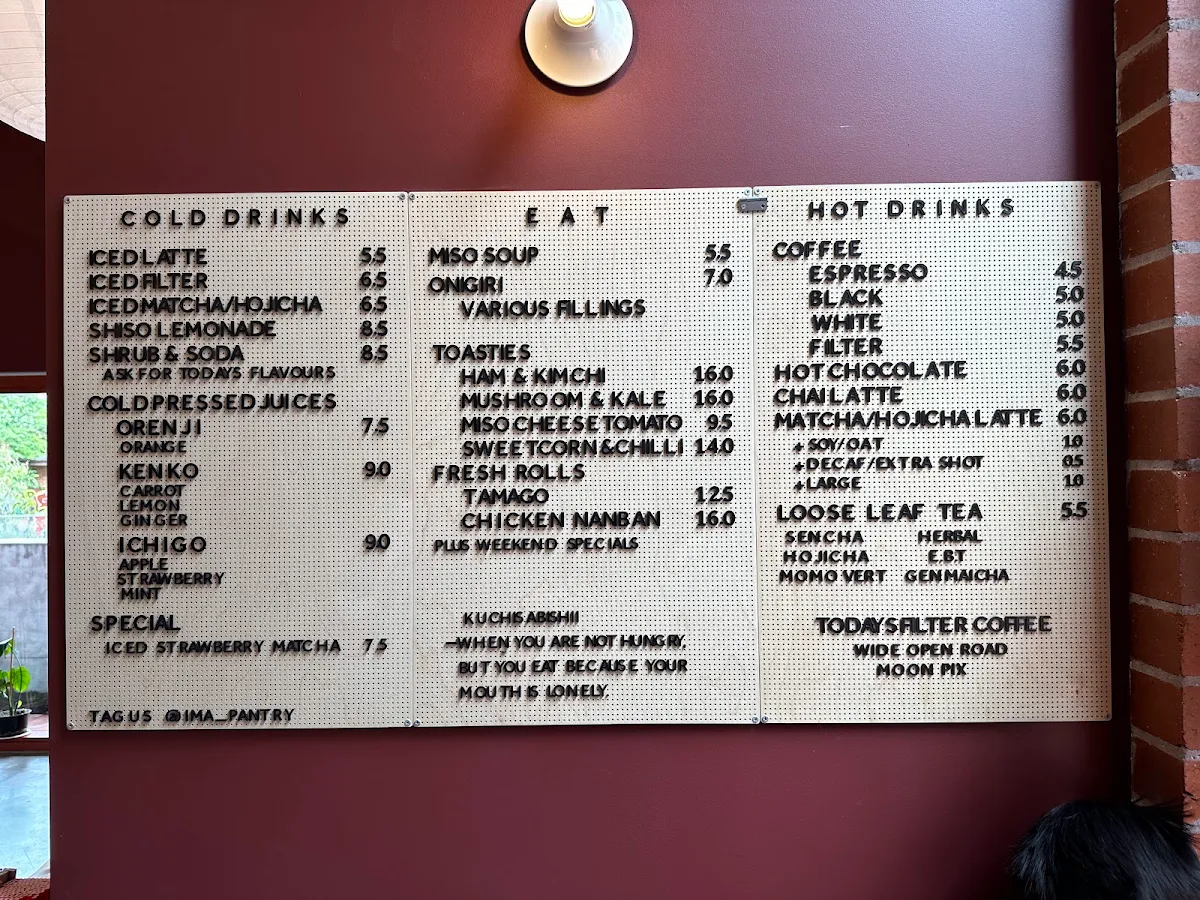 COLD DRINKS
ICED LATTE 5.5
ICED FILTER 6.5
ICED MATCHA/HOJICHA 6.5
SHISO LEMONADE 8.5
SHRUB & SODA 8.5
ASK FOR TODAYS FLAVOURS
COLD PRESSED JUICES
ORENJI 7.5
ORANGE
KENKO 9.0
CARROT
LEMON
GINGER
ICHIGO 9.0
APPLE
STRAWBERRY
MINT
SPECIAL
ICED STRAWBERRY MATCHA 7.5
TAG US @IMA_PANTRY
EAT
MISO SOUP 5.5
ONIGIRI 7.0
VARIOUS FILLINGS
TOASTIES
HAM & KIMCHI 16.0
MUSHROOM & KALE 16.0
MISO CHEESE TOMATO 9.5
SWEETCORN & CHILLI 14.0
FRESH ROLLS
TAMAGO 12.5
CHICKEN NANBAN 16.0
PLUS WEEKEND SPECIALS
KUCHISABISHII
—WHEN YOU ARE NOT HUNGRY,
BUT YOU EAT BECAUSE YOUR
MOUTH IS LONELY.
HOT DRINKS
COFFEE
ESPRESSO 4.5
BLACK 5.0
WHITE 5.0
FILTER 5.5
HOT CHOCOLATE 6.0
CHAI LATTE 6.0
MATCHA/HOJICHA LATTE 6.0
+SOY/OAT 1.0
+DECAF/EXTRA SHOT 0.5
+LARGE 1.0
LOOSE LEAF TEA 5.5
SENCHA HERBAL
HOJICHA E.B.T
MOMO VERT GENMAICHA
TODAYS FILTER COFFEE
WIDE OPEN ROAD
MOON PIX